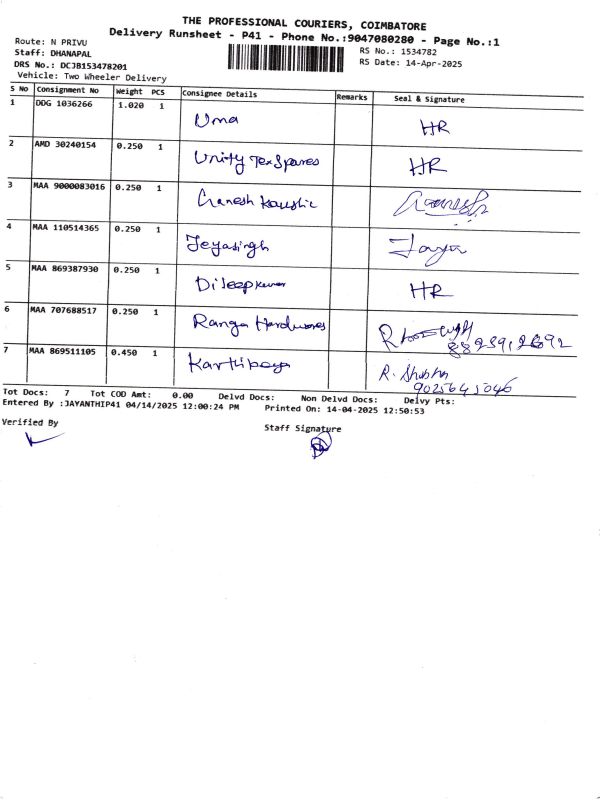 THE PROFESSIONAL COURIERS, COIMBATORE
Delivery Runsheet - P41 - Phone No.:9047080280 - Page No.:1
Route: N PRIVU
Staff: DHANAPAL
DRS No.: DCJB153478201
Vehicle: Two Wheeler Delivery
RS No.: 1534782
RS Date: 14-Apr-2025
S No Consignment No Weight PCS Consignee Details Remarks Seal & Signature
1 DDG 1036266 1.020 1 Uma HR
2 AMD 30240154 0.250 1 Unity Tex Spares HR
3 MAA 9000083016 0.250 1 Ganesh Kaushic
4 MAA 110514365 0.250 1 Jeyasingh Jaya
5 MAA 869387930 0.250 1 Dileepkumar HR
6 MAA 707688517 0.250 1 Ranga Hardwares
7 MAA 869511105 0.450 1 R.
9025645046
Tot Docs: 7 Tot COD Amt: 0.00 Delvd Docs: Non Delvd Docs: Delvy Pts:
Entered By :JAYANTHIP41 04/14/2025 12:00:24 PM Printed On: 14-04-2025 12:50:53
Verified By
Staff Signature